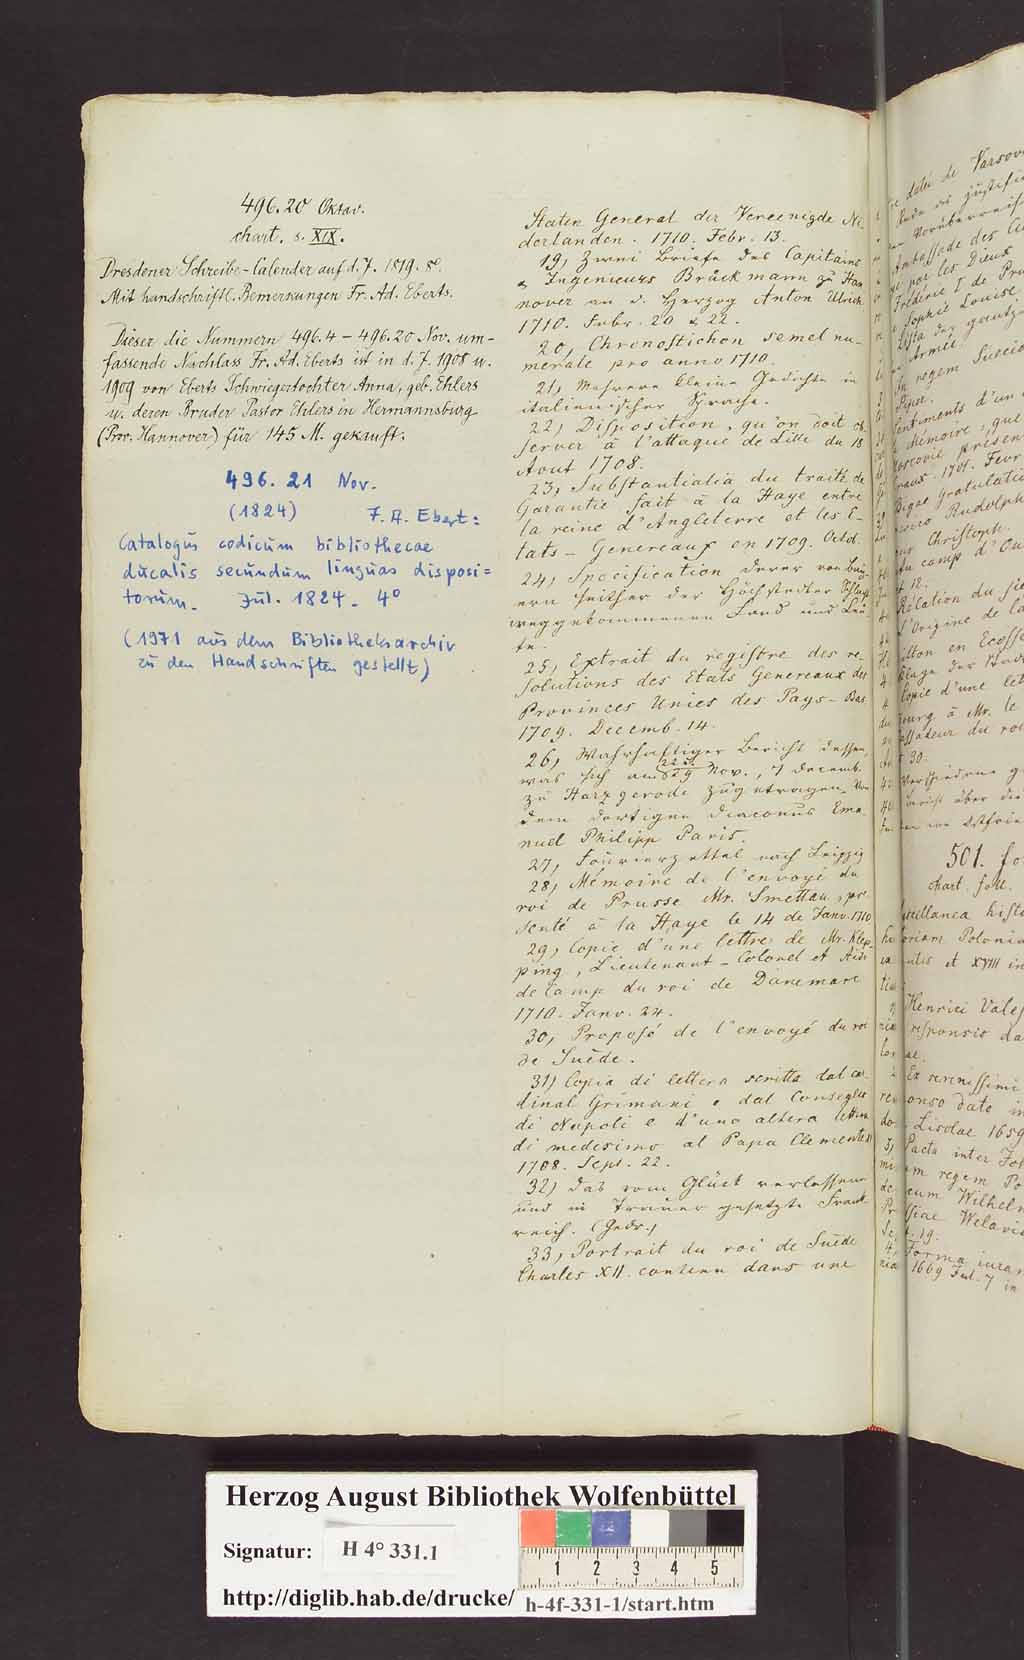 496.20 Oktav.
chart. s. XIX.
Dresdener Schreibe-Calender auf d. J. 1819. 8º.
Mit handschriftl. Bemerkungen Fr. Ad. Eberts.
Dieser die Nummern 496.4 – 496.20 Nov. um-
fassende Nachlass Fr. Ad. Eberts ist in d. J. 1908 u.
1909 von Eberts Schwiegertochter Anna, geb. Ehlers
u. deren Bruder Pastor Ehlers in Hermannsburg
(Prov. Hannover) für 145 M. gekauft.
496. 21 Nov.
(1824) F. A. Ebert:
Catalogus codicum bibliothecae
ducalis secundum linguas disposi=
torum. Jul. 1824. 4º
(1971 aus dem Bibliotheksarchiv
zu den Handschriften gestellt)
Staten General der Vereenigde Ne-
derlanden. 1710. Febr. 13.
19, Zwei Briefe des Capitains
& Ingenieurs Brückmann zu Han
nover an d. Herzog Anton Ulrich
1710. Febr. 20 & 22.
20, Chronostichon semel nu-
merale pro anno 1710.
21, Mehrere kleine Gedichte in
italienischer Sprache.
22, Disposition, qu'on doit ob
server à l'attaque de Lille du 18
Aout 1708.
23, Substantialia du traité de
Garantie fait à la Haye entre
la reine d'Angleterre et les E-
tats-Genereaux en 1709. Octd.
24, Specification derer von bay
ern seither der Höchstedter Schlacht
weggekommenen Land und Leu
te.
25, Extrait du registre des re-
solutions des Etats Genereaux des
Provinces Unies des Pays-Bas
1709. Decemb. 14.
26, Wahrhaftiger Bericht dessen,
was sich am 22. 29 Nov., 7 Decemb.
zu Harzgerode zugetragen, von
dem dortigen Diaconus Ema
nuel Philipp Paris.
27, Fourierzettel nach Leipzig
28, Mémoire de l'envoyé du
roi de Prusse Mr. Smettau, pré
senté à la Haye le 14 de Janv. 1710
29, Copie d'une lettre de Mr. Klep
ping, Lieutenant-Colonel et Aide
de Camp du roi de Danemarc
1710. Janv. 24.
30, Proposé de l'envoyé du roi
de Suède.
31) Copia di lettera scritta dal car
dinal Grimani e dal Consegler
di Napoli e d'una altera lettera
di medesimo al Papa Clemente XI
1708. Sept. 22.
32) Das vom Glück verlassene
und in Trauer gesetzte Frank
reich. (Gedr.)
33, Portrait du roi de Suède
Charles XII. contenu dans une
de Varsov
Ambassade des
par les Dieux
Frédéric I de Pru
Sophie Louise
Armée
regem Sueciae
Sentiments d'un
mémoire, que
Moscovie présen
1701. Fevr
gratulati
Rudolph
Christoph.
du camp d'Ou
Rélation du
l'Origine de la
en Ecosse
Copie d'une let
à Mr. le
du roi
30.
über die
501. fo
chart. foll.
Miscellanea histo
Polonia
et XVIII in
Henrici Vales
responsio da
Ex serenissimi
dato in
Lisdae 1659
Pacta inter Jo
regem Po
cum Wilhelm
Welavi
19.
Forma iura
1669. Jul. 7 in
Herzog August Bibliothek Wolfenbüttel
Signatur: H 4° 331.1
1 2 3 4 5
http://diglib.hab.de/drucke/ h-4f-331-1/start.htm